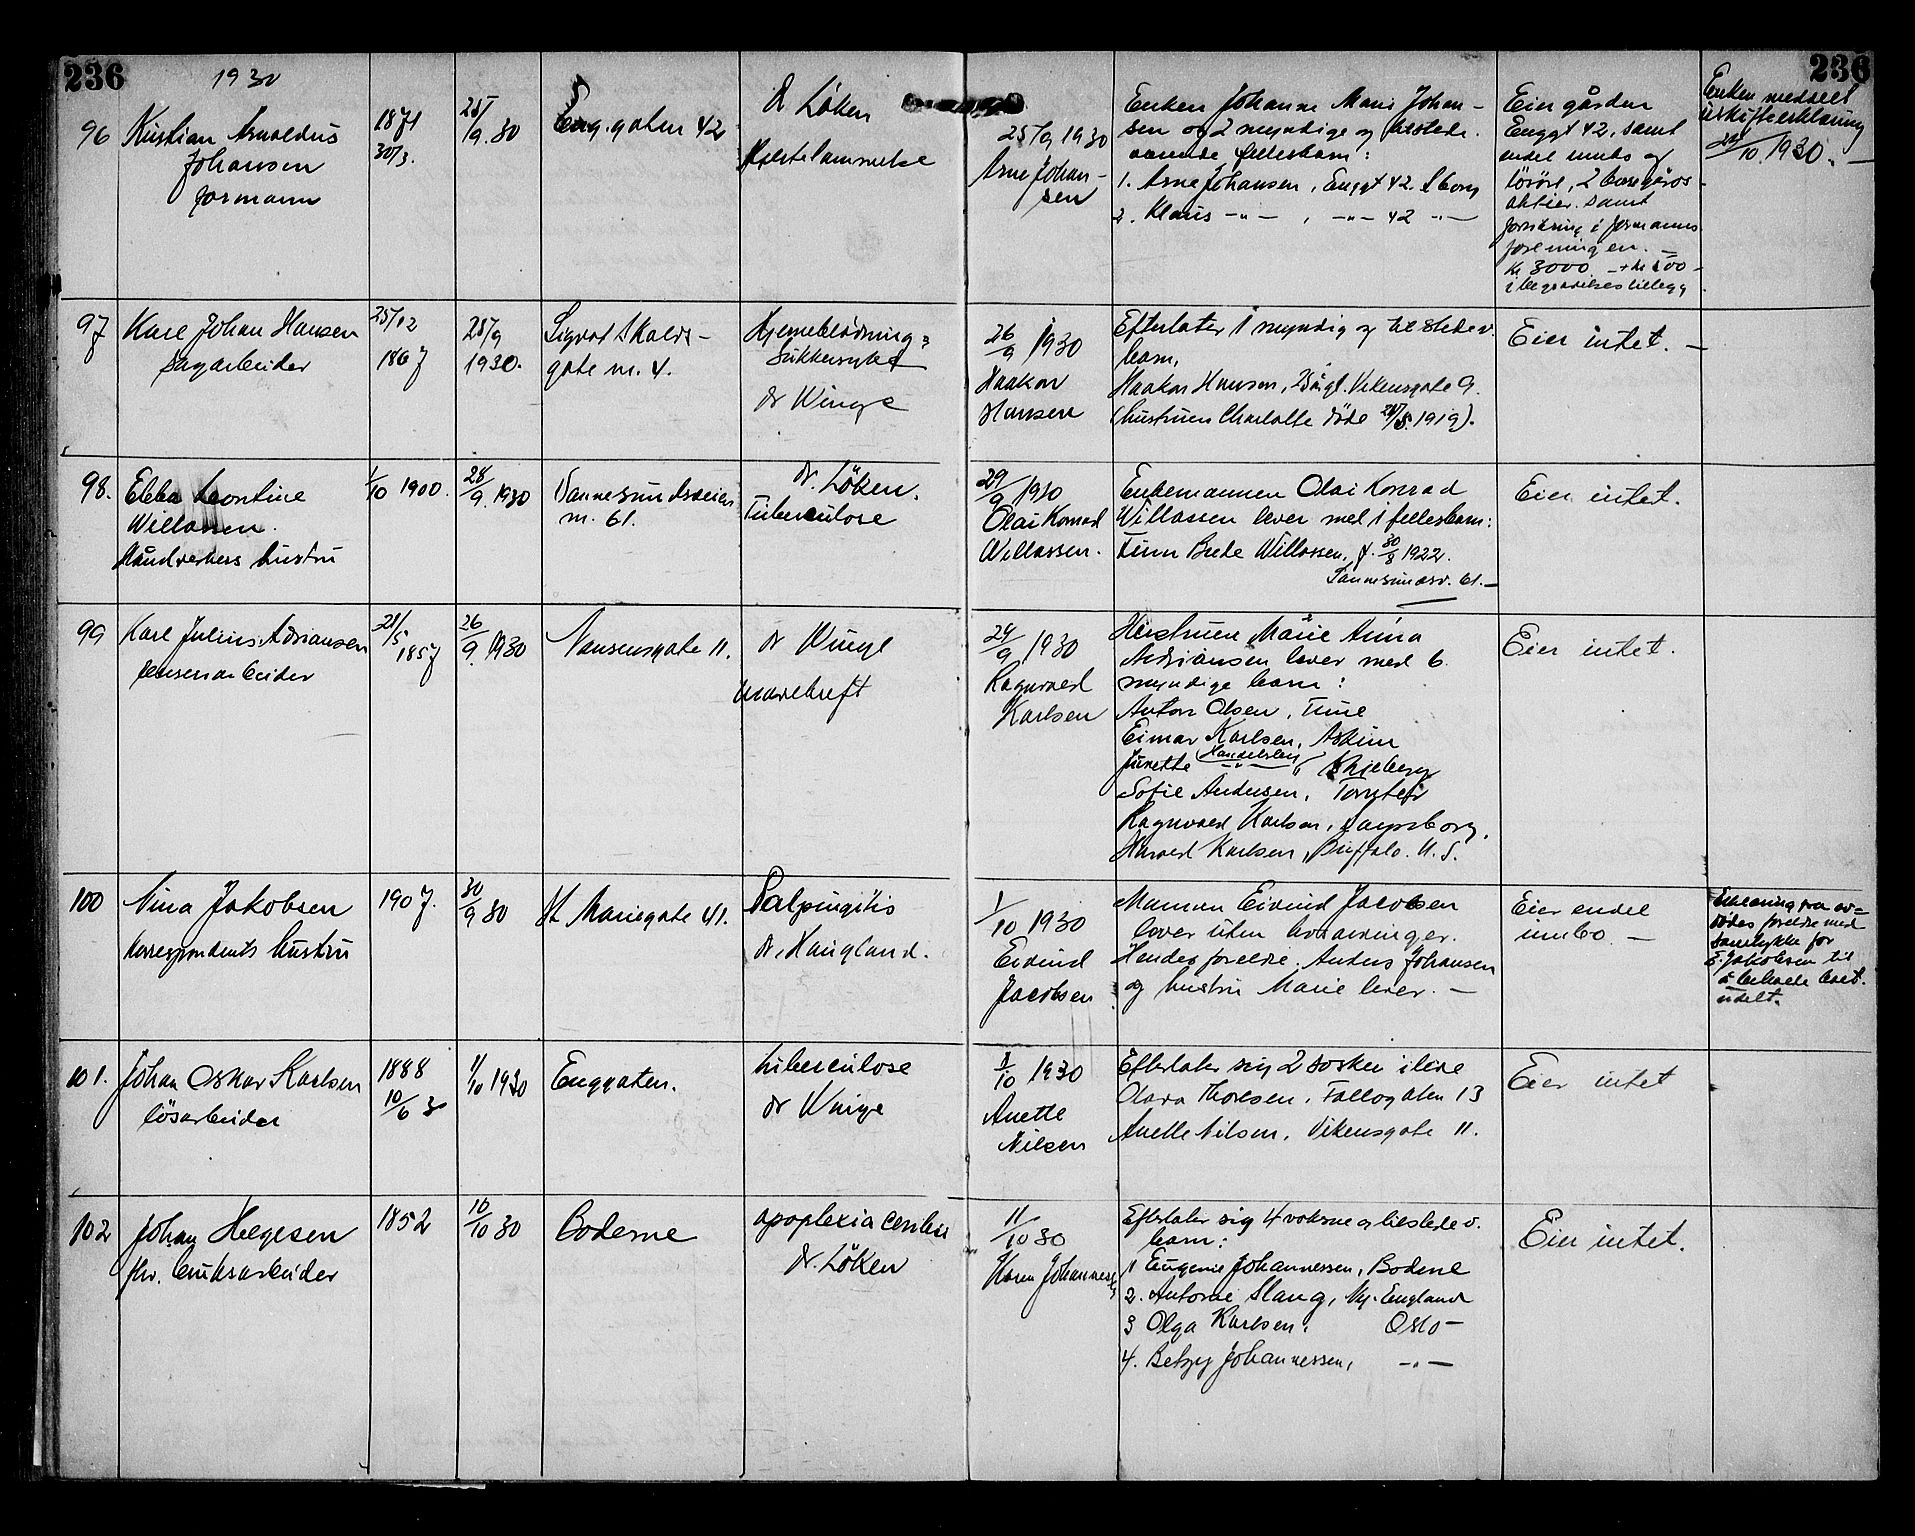 236
1930
236
96
Kristian Arnoldus
Johansen
formann
1871
30/3.
25/9.30
Eng.gaten 42
Dr Löken
Hjertelammelse
25/9 1930
Arne Johan-
sen
Enken Johanne Marie Johan-
sen og 2 myndige og tilstede-
værende fellesbarn:
1. Arne Johansen, Enggt 42. S.borg
2. Klaus -"- , -"- 42 -"-
Eier gården
Enggt 42, samt
endel innbo og
lösöre, 2 Borregårds
aktier samt
forsikring i formanns
foreningen. -
Kr. 3000 - + kr 500 -
i begravelsestillegg
Enken meddelt
uskifteerklæring
/10. 1930. -
97
Karl Johan Hansen
Sagarbeider
25/12
1867
25/9
1930.
Sigvat Skalds-
gate nr. 4.
Hjerneblödning =
Sukkersyke
dr Winge
26/9 1930
Haakon
Hansen
Efterlater 1 myndig og tilstedev.
barn,
Haakon Hansen, Vikensgate 9.
(hustruen Charlotte döde /5.1919).
Eier intet. -
98.
Ebba Leontine
Willassen.
Håndverkers hustru
1/10 1900.
28/9. 1930
Sannesundsveien
nr. 61.
dr. Löken.
Tuberculose
29/9 1930
Olai Konrad
Willassen.
Enkemannen Olai Konrad
Willassen lever med 1 fellesbarn:
Finn Brede Willassen, f. 30/8 1922.
Sannesundsv. 61. -
Eier intet.
99
Karl Julius Adriansen
lensearbeider
21/5 1857
26/9. 1930
Nansensgate 11.
dr Winge
mavekreft
29/9 1930
Ragnvald
Karlsen
Hustruen Marie Anna
Adriansen lever med 6
myndige barn:
Anton Olsen, Tune
Einar Karlsen, Askim
Junette -"- Skjeberg
Sofie Andersen, Torsteis
Ragnvald Karlsen, Sarpsborg,
Harald Karlsen, Buffalo. U.S.
Eier intet.
100
Nina Jakobsen
korrespondents hustru
1907.
30/9 30
St. Mariegate 41.
Salpingitis
dr. Haugland.
1/10 1930
Eivind
Jacobsen
Mannen Eivind Jacobsen
lever uten livsarvinger.
Hendes foreldre. Anders Johansen
og hustru Marie lever. -
Eier endel
innbo. -
Erklæring fra av-
dödes foreldre med
samtykke for
E. Jakobsen til
å beholde boet
udelt.
101.
Johan Oskar Karlsen
lösarbeider
1888
10/6
1/10 1930
Enggaten.
tuberculose
dr Winge
/10 1930
Anette
Nilsen
Efterlater sig 2 sösken ilive
Olava Thoresen. Fallogaten 13
Anette Nilsen, Vikensgate 11.
Eier intet
102
Johan Helgesen
fhv. bruksarbeider
1852
10/10 30
Boderne
apoplexia cerebri
dr. Löken
11/10 30
Karen Johannessen
Efterlater sig 4 voksne og tilstedev.
barn:
1 Eugenie Johannessen, Boderne
2. Antonie Slang, Ny. England
3 Olga Karlsen. Oslo -
4. Betzy Johannessen, -"-
Eier intet.